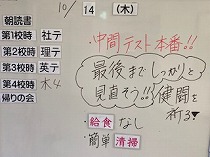 10/14(木)
朝読書
第1校時 社テ
第2校時 理テ
第3校時 英テ
第4校時 木4
帰りの会
・中間テスト本番!!
最後までしっかりと
見直そう!!健闘を
祈る
・給食なし
・簡単清掃